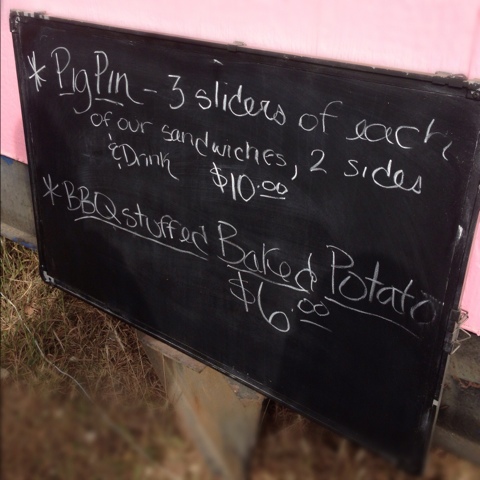 * Pig Pin - 3 sliders of each
of our sandwiches, 2 sides
& Drink $10.00
* BBQ stuffed Baked Potato
$6.00